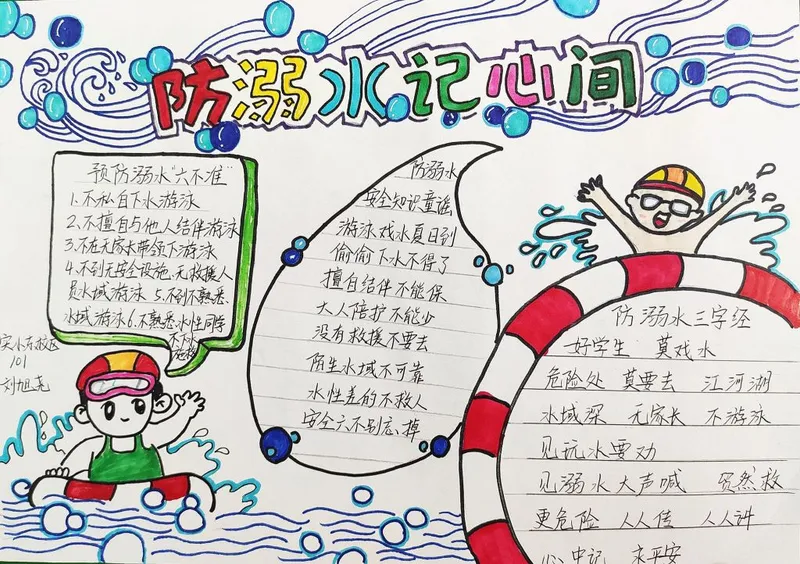 防溺水记心间
预防溺水"六不准"
1、不私自下水游泳
2、不擅自与他人结伴游泳
3、不在无家长带领下游泳
4、不到无安全设施、无救援人
员水域游泳 5、不到不熟悉、
水域游泳 6、不熟悉水性同学
不下水
施救
实小东校区
101
刘旭尧
防溺水
安全知识童谣
游泳戏水夏日到
偷偷下水不得了
擅自结伴不能保
大人陪护不能少
没有救援不要去
陌生水域不可靠
水性差的不救人
安全六不别忘、掉
防溺水三字经
好学生 莫戏水
危险处 莫要去 江河湖
水域深 无家长 不游泳
见玩水要劝
见溺水大声喊 贸然救
更危险 人人传 人人讲
心中记 永平安